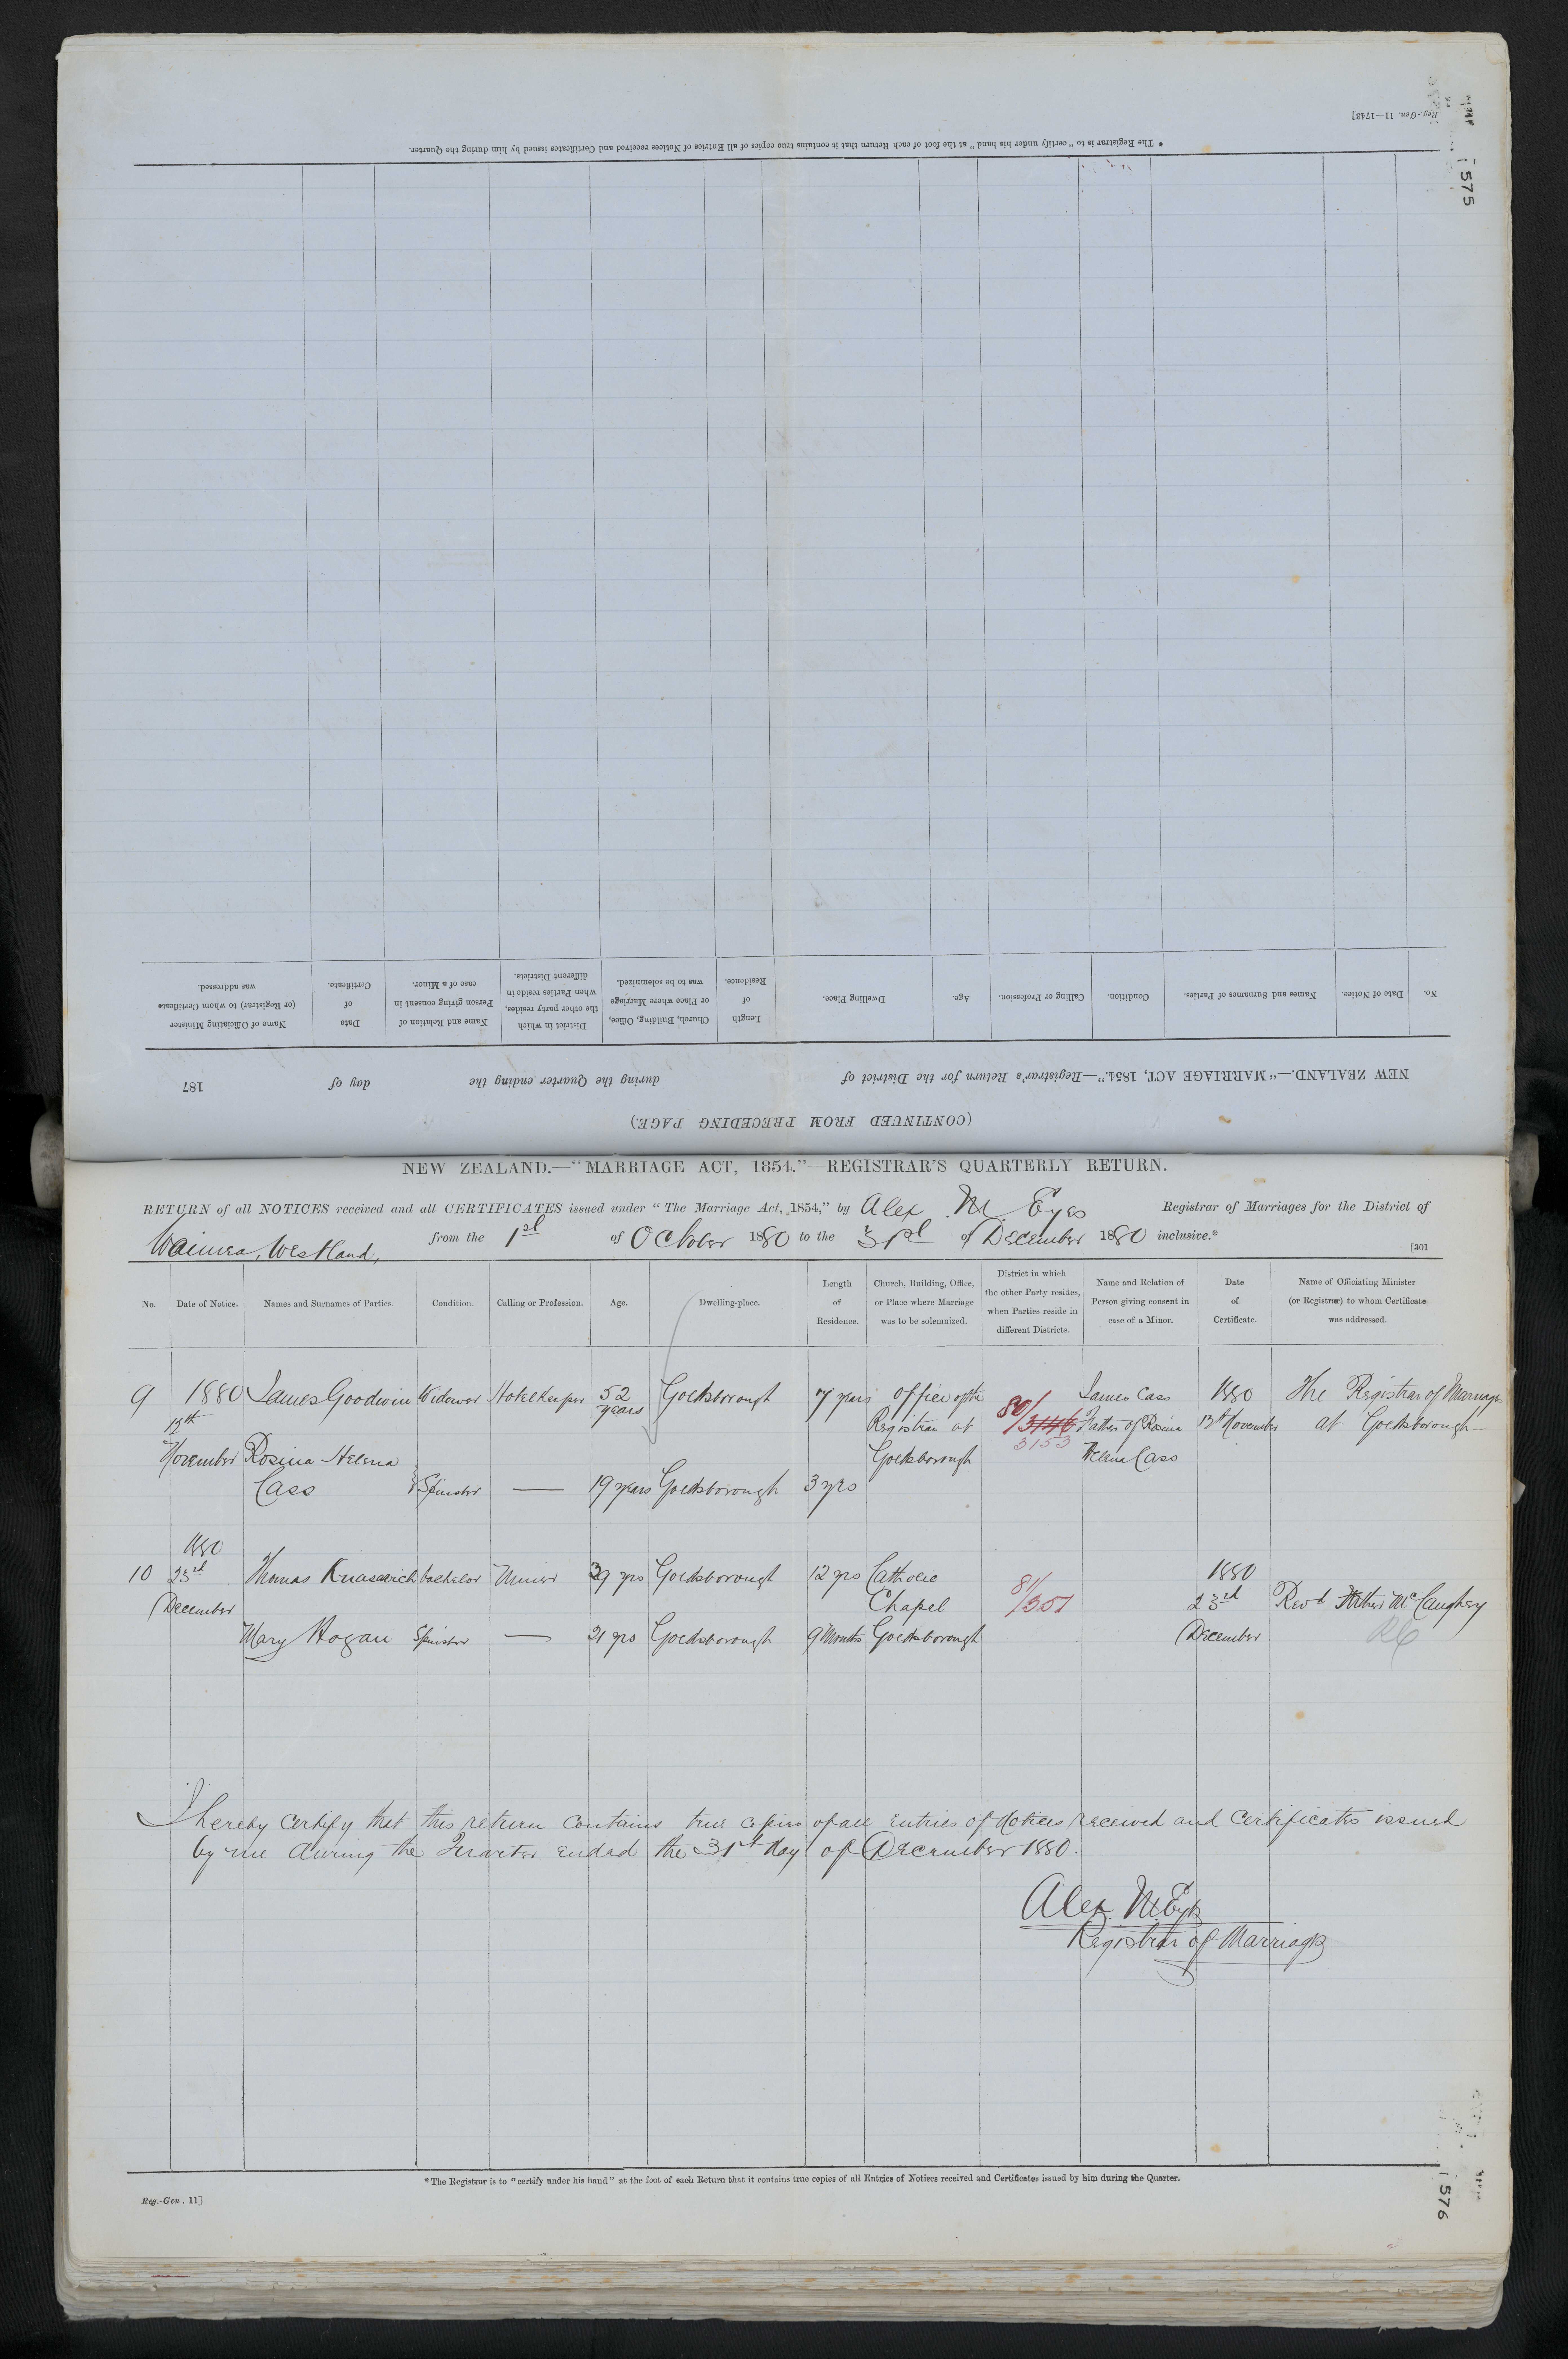 Reg.-Gen. 11—1743]
575
* The Registrar is to "certify under his hand" at the foot of each Return that it contains true copies of all Entries of Notices received and Certificates issued by him during the Quarter.
(CONTINUED FROM PRECEDING PAGE.)
NEW ZEALAND.—"MARRIAGE ACT, 1854."—Registrar's Return for the District of during the Quarter ending the day of 187
No. Date of Notice. Names and Surnames of Parties. Condition. Calling or Profession. Age. Dwelling Place. Length of Residence. Church, Building, Office, or Place where Marriage was to be solemnized. District in which the other party resides, when Parties reside in different Districts. Name and Relation of Person giving consent in case of a Minor. Date of Certificate. Name of Officiating Minister (or Registrar) to whom Certificate was addressed.
NEW ZEALAND.—"MARRIAGE ACT, 1854."—REGISTRAR'S QUARTERLY RETURN.
RETURN of all NOTICES received and all CERTIFICATES issued under "The Marriage Act, 1854," by Alex M Eyes Registrar of Marriages for the District of
Waimea, Westland, from the 1st of October 1880 to the 31st of December 1880 inclusive.*
[301
No. Date of Notice. Names and Surnames of Parties. Condition. Calling or Profession. Age. Dwelling-place. Length of Residence. Church, Building, Office, or Place where Marriage was to be solemnized. District in which the other Party resides, when Parties reside in different Districts. Name and Relation of Person giving consent in case of a Minor. Date of Certificate. Name of Officiating Minister (or Registrar) to whom Certificate was addressed.
9 1880 James Goodwin Widower Hotelkeeper 52 years Goldsborough 7 years office of the 80/ James Cass 1880 The Registrar of Marriages
12th Registrar at 3146 Father of Rosina 12th November at Goldsborough—
November Rosina Helena Goldsborough 3153 Helena Cass
Cass Spinster — 19 years Goldsborough 3 yrs
1880
10 23rd Thomas bachelor Miner 39 yrs Goldsborough 12 yrs Catholic 81/ 1880
December Chapel 351 23rd Revd Father McCaughey
Mary Hogan Spinster — 21 yrs Goldsborough 9 Months Goldsborough December RC
I hereby certify that this return contains true copies of all Entries of Notices received and Certificates issued
by me during the Quarter ended the 31st day of December 1880.
Alex. M. Eyes
Registrar of Marriages
* The Registrar is to "certify under his hand" at the foot of each Return that it contains true copies of all Entries of Notices received and Certificates issued by him during the Quarter.
Reg.-Gen. 11]
576